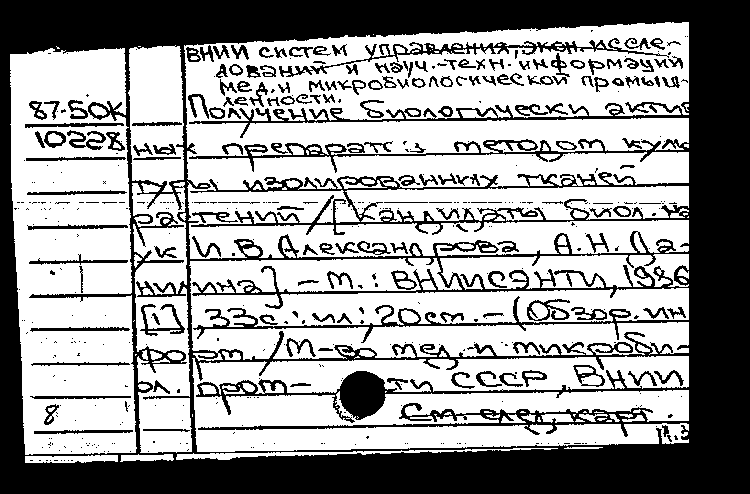 ВНИИ систем управления, экон. иссле-
дований и науч.-техн. информации
мед. и микробиологической промыш-
ленности.
87-50К Получение биологически актив
10228 ных препаратов методом куль
туры изолированных тканей
растений / [Кандидаты биол. на
ук И. В. Александрова, А. Н. Да-
нилина]. – М. : ВНИИСЭНТИ, 1986
[1], 33 с. : ил ; 20 см. – (Обзор. ин
форм. / М-во мед. и микроби-
ол. пром- ти СССР, ВНИИ
8 См. след. карт.